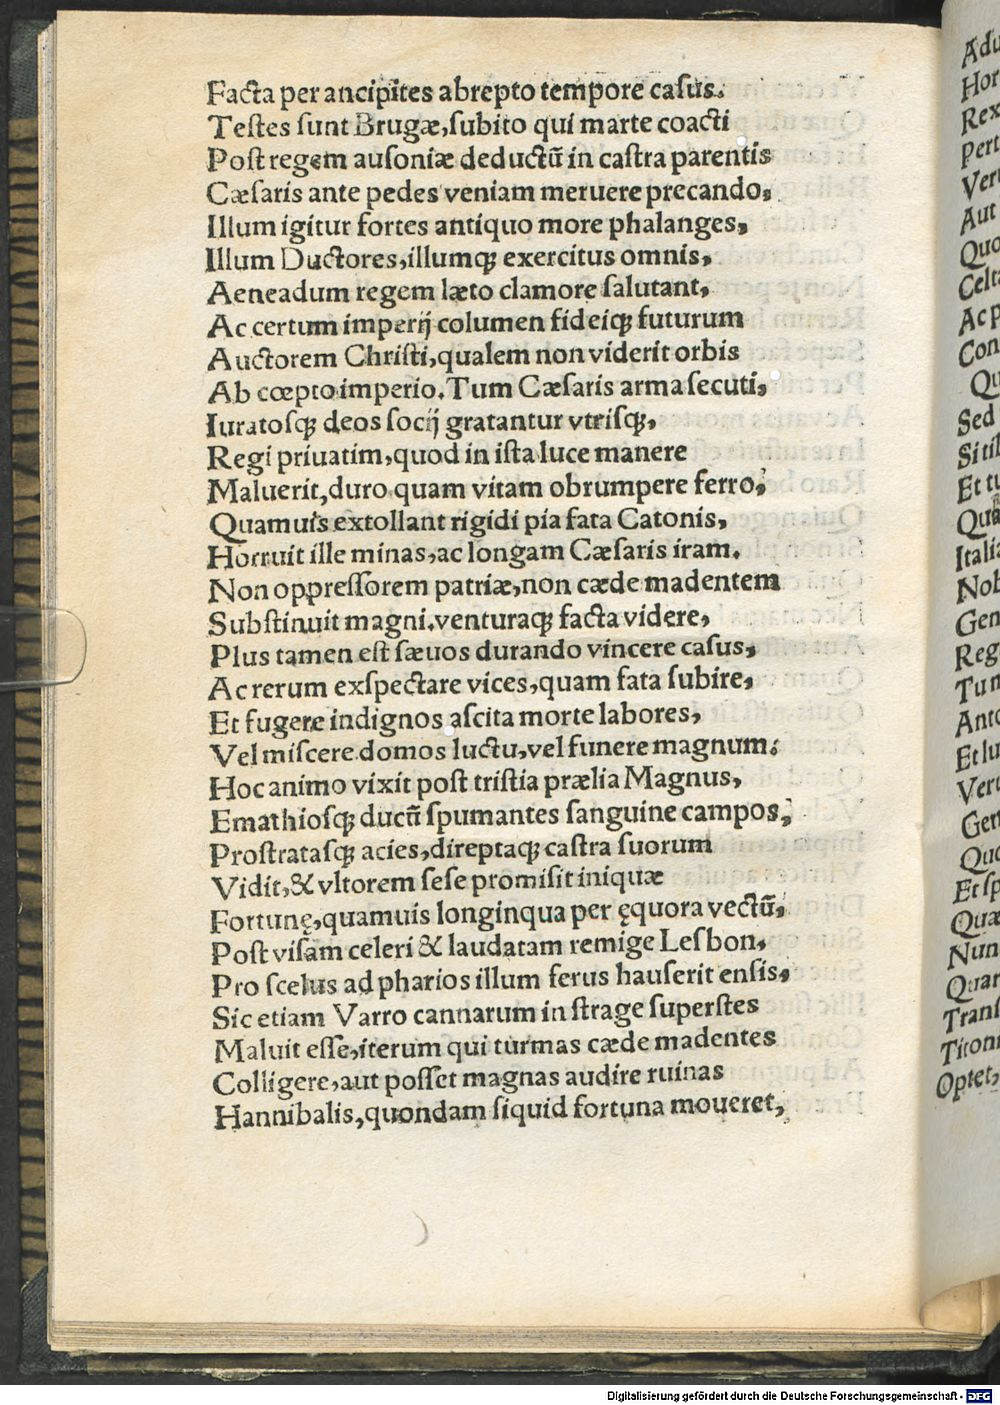 Facta per ancipites abrepto tempore casus.
Testes sunt Brugæ, subito qui marte coacti
Post regem ausoniæ deductū in castra parentis
Cæsaris ante pedes veniam meruere precando,
Illum igitur fortes antiquo more phalanges,
Illum Ductores, illumqꝫ exercitus omnis,
Aeneadum regem læto clamore salutant,
Ac certum imperij columen fideiqꝫ futurum
Auctorem Christi, qualem non viderit orbis
Ab cœpto imperio. Tum Cæsaris arma secuti,
Iuratosqꝫ deos socij gratantur vtrisqꝫ,
Regi priuatim, quod in ista luce manere
Maluerit, duro quam vitam obrumpere ferro,
Quamuis extollant rigidi pia fata Catonis,
Horruit ille minas, ac longam Cæsaris iram.
Non oppressorem patriæ, non cæde madentem
Substinuit magni. venturaqꝫ facta videre,
Plus tamen est sæuos durando vincere casus,
Ac rerum exspectare vices, quam fata subire,
Et fugere indignos ascita morte labores,
Vel miscere domos luctu, vel funere magnum:
Hoc animo vixit post tristia prælia Magnus,
Emathiosqꝫ ducū spumantes sanguine campos,
Prostratasqꝫ acies, direptaqꝫ castra suorum
Vidit, & vltorem sese promisit iniquæ
Fortunę, quamuis longinqua per ęquora vectū,
Post visam celeri & laudatam remige Lesbon,
Pro scelus ad pharios illum ferus hauserit ensis,
Sic etiam Varro cannarum in strage superstes
Maluit esse, iterum qui turmas cæde madentes
Colligere, aut posset magnas audire ruinas
Hannibalis, quondam siquid fortuna moueret,
Hor
Rex
Pert
Aut
Quo
Celt
Ac p
Con
Qu
Sed
Si ti
Et t
Quā
Itali
Nob
Gen
Reg
Tun
Anto
Et lu
Ver
Ger
Quo
Et sp
Quæ
Nun
Quar
Trans
Titon
Optet,
Digitalisierung gefördert durch die Deutsche Forschungsgemeinschaft - DFG